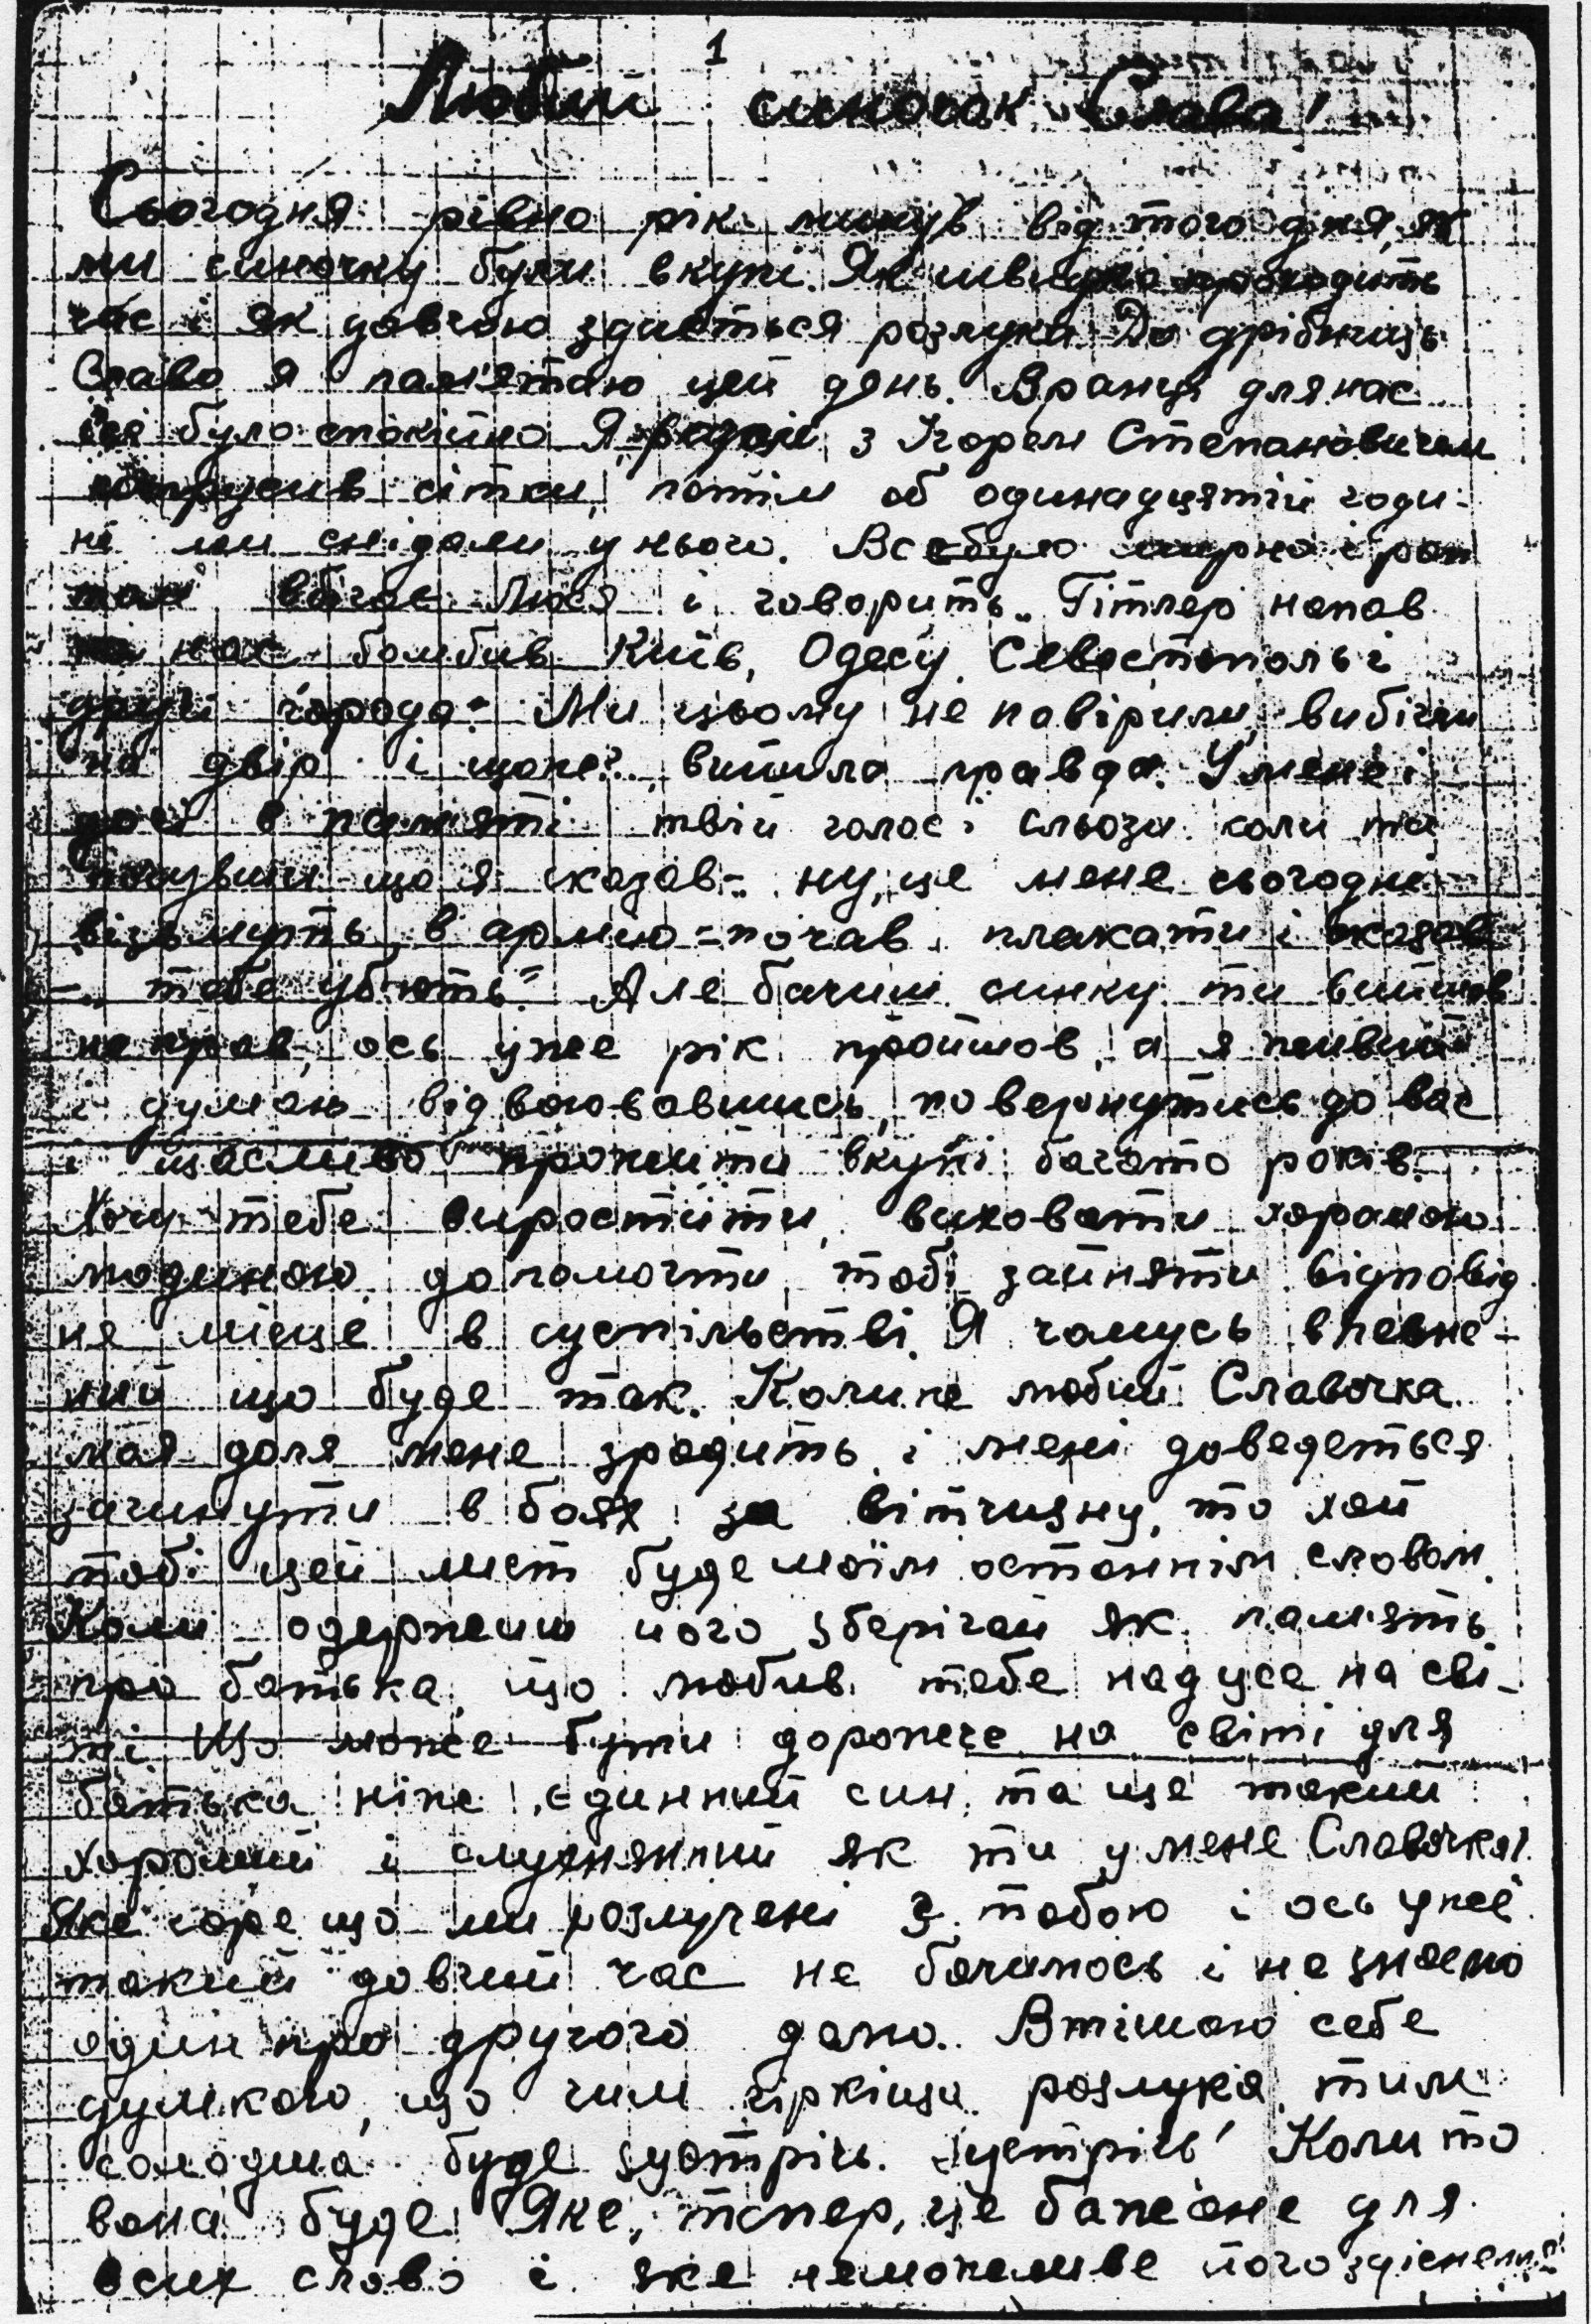 1
Любий синочок Слава!
Сьогодня рівно рік минув від того дня, як
ми синочку були вкупі. Як швидко проходить
час і як довгою здається розлука. До дрібниць
Слава я памʼятаю цей день. Вранці для нас
все було спокійно. Я разом з Ігорем Степановичем
потрусив сітки, потім об одинадцятій годи-
ні ми снідали у нього. Все було мирно і рап
том вбігає Люся і говорить „Гітлер напав
на нас бомбив Київ, Одесу, Севастополь і
другі города". Ми цьому не повірили, вибігли
на двір і щоже?, вийшла правда. У мене і
досі в памʼяті твій голос і сльози коли ти
почувши що я сказав - „ну, це мене сьогодні
візьмуть в армію" - почав плакати і казав
- „тебе убʼють". Але бачиш синку ти вийшов
не прав, ось уже рік пройшов, а я живий
і думаю відвоювавшись, повернутись до вас
і щасливо прожити вкупі багато років.
Хочу тебе виростити, виховати хорошою
людиною, допомогти тобі зайняти відповід
не місце в суспільстві. Я чомусь впевне-
ний що буде так. Колиже любий Славочка
моя доля мене зрадить і мені доведеться
загинути в боях за вітчизну, то хай
тобі цей лист буде моїм останнім словом.
Коли одержиш його зберігай як памʼять
про батька, що любив тебе над усе на сві-
ті. Що може бути дорожече на світі для
батька ніже єдинний син, та ще такий
хороший і слухняний як ти у мене Славочка!
Яке горе що ми розлучені з тобою і ось уже
такий довгий час не бачимось і не знаємо
один про другого дано. Втішаю себе
думкою, що чим гіркіша розлука, тим
солодша буде зустріч. Зустріч! Коли то
вона буде. Яке, тепер, це бажане для
всих слово і яке неможливе його здіснення